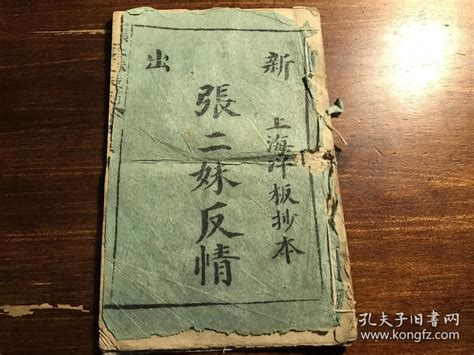 新出
上海洋板抄本
張二妹反情
孔夫子旧书网
www.kongfz.com